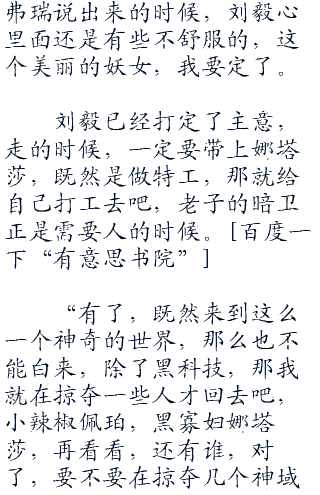 弗瑞说出来的时候，刘毅心
里面还是有些不舒服的，这
个美丽的妖女，我要定了。
刘毅已经打定了主意，
走的时候，一定要带上娜塔
莎，既然是做特工，那就给
自己打工去吧，老子的暗卫
正是需要人的时候。[百度一
下“有意思书院”]
“有了，既然来到这么
一个神奇的世界，那么也不
能白来，除了黑科技，那我
就在掠夺一些人才回去吧，
小辣椒佩珀，黑寡妇娜塔
莎，再看看，还有谁，对
了，要不要在掠夺几个神域